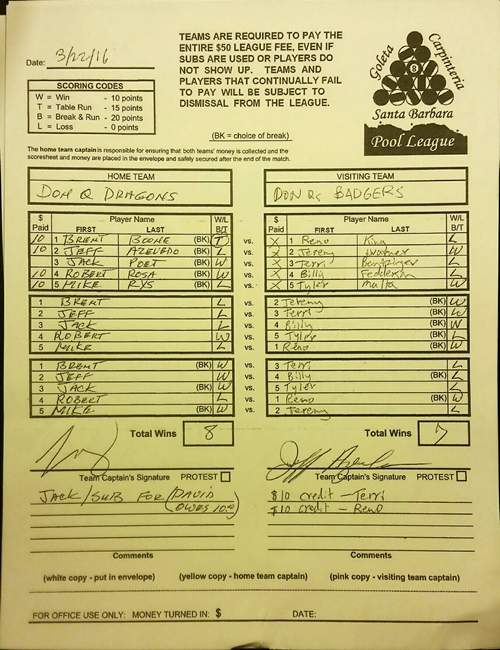 Date: 3/22/16
TEAMS ARE REQUIRED TO PAY THE
ENTIRE $50 LEAGUE FEE, EVEN IF
SUBS ARE USED OR PLAYERS DO
NOT SHOW UP. TEAMS AND
PLAYERS THAT CONTINUALLY FAIL
TO PAY WILL BE SUBJECT TO
DISMISSAL FROM THE LEAGUE.
(BK = choice of break)
Goleta Carpinteria
8
Santa Barbara
Pool League
SCORING CODES
W = Win - 10 points
T = Table Run - 15 points
B = Break & Run - 20 points
L = Loss - 0 points
The home team captain is responsible for ensuring that both teams' money is collected and the
scoresheet and money are placed in the envelope and safely secured after the end of the match.
HOME TEAM VISITING TEAM
DON Q DRAGONS DON Q's BADGERS
$ Paid Player Name FIRST LAST W/L B/T $ Paid Player Name FIRST LAST W/L B/T
10 1 BRENT BOONE (BK) T vs. X 1 Reno King L
10 2 JEFF AZEVEDO (BK) L vs. X 2 Jeremy W
3 JACK POET (BK) W vs. X 3 Terri L
10 4 ROBERT ROSA (BK) W vs. X 4 Billy L
10 5 MIKE RYS (BK) L vs. X 5 Tyler W
1 BRENT L vs. 2 Jeremy (BK) W
2 JEFF L vs. 3 Terri (BK) W
3 JACK L vs. 4 Billy (BK) W
4 ROBERT W vs. 5 Tyler (BK) L
5 MIKE L vs. 1 Reno (BK) W
1 BRENT (BK) W vs. 3 Terri L
2 JEFF W vs. 4 Billy (BK) L
3 JACK (BK) W vs. 5 Tyler L
4 ROBERT L vs. 1 Reno (BK) W
5 MIKE (BK) W vs. 2 Jeremy L
Total Wins 8 Total Wins 7
Team Captain's Signature PROTEST Team Captain's Signature PROTEST
JACK/SUB FOR (DAVID $10 credit - Terri
$10 credit - Reno
Comments Comments
(white copy - put in envelope) (yellow copy - home team captain) (pink copy - visiting team captain)
FOR OFFICE USE ONLY: MONEY TURNED IN: $ DATE: